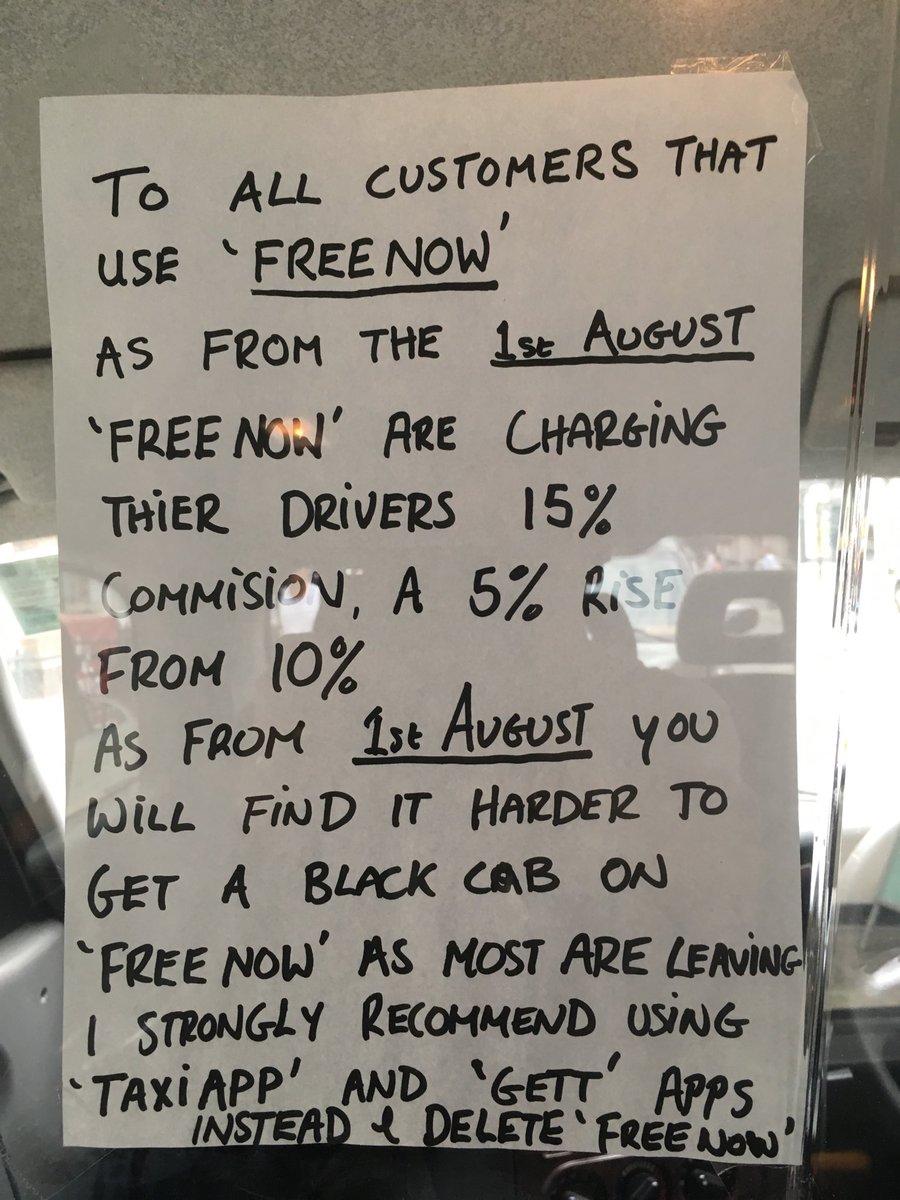 TO ALL CUSTOMERS THAT
USE 'FREE NOW'
AS FROM THE 1st AUGUST
'FREE NOW' ARE CHARGING
THIER DRIVERS 15%
COMMISION, A 5% RISE
FROM 10%
AS FROM 1st AUGUST YOU
WILL FIND IT HARDER TO
GET A BLACK CAB ON
'FREE NOW' AS MOST ARE LEAVING
I STRONGLY RECOMMEND USING
'TAXIAPP' AND 'GETT' APPS
INSTEAD & DELETE 'FREE NOW'